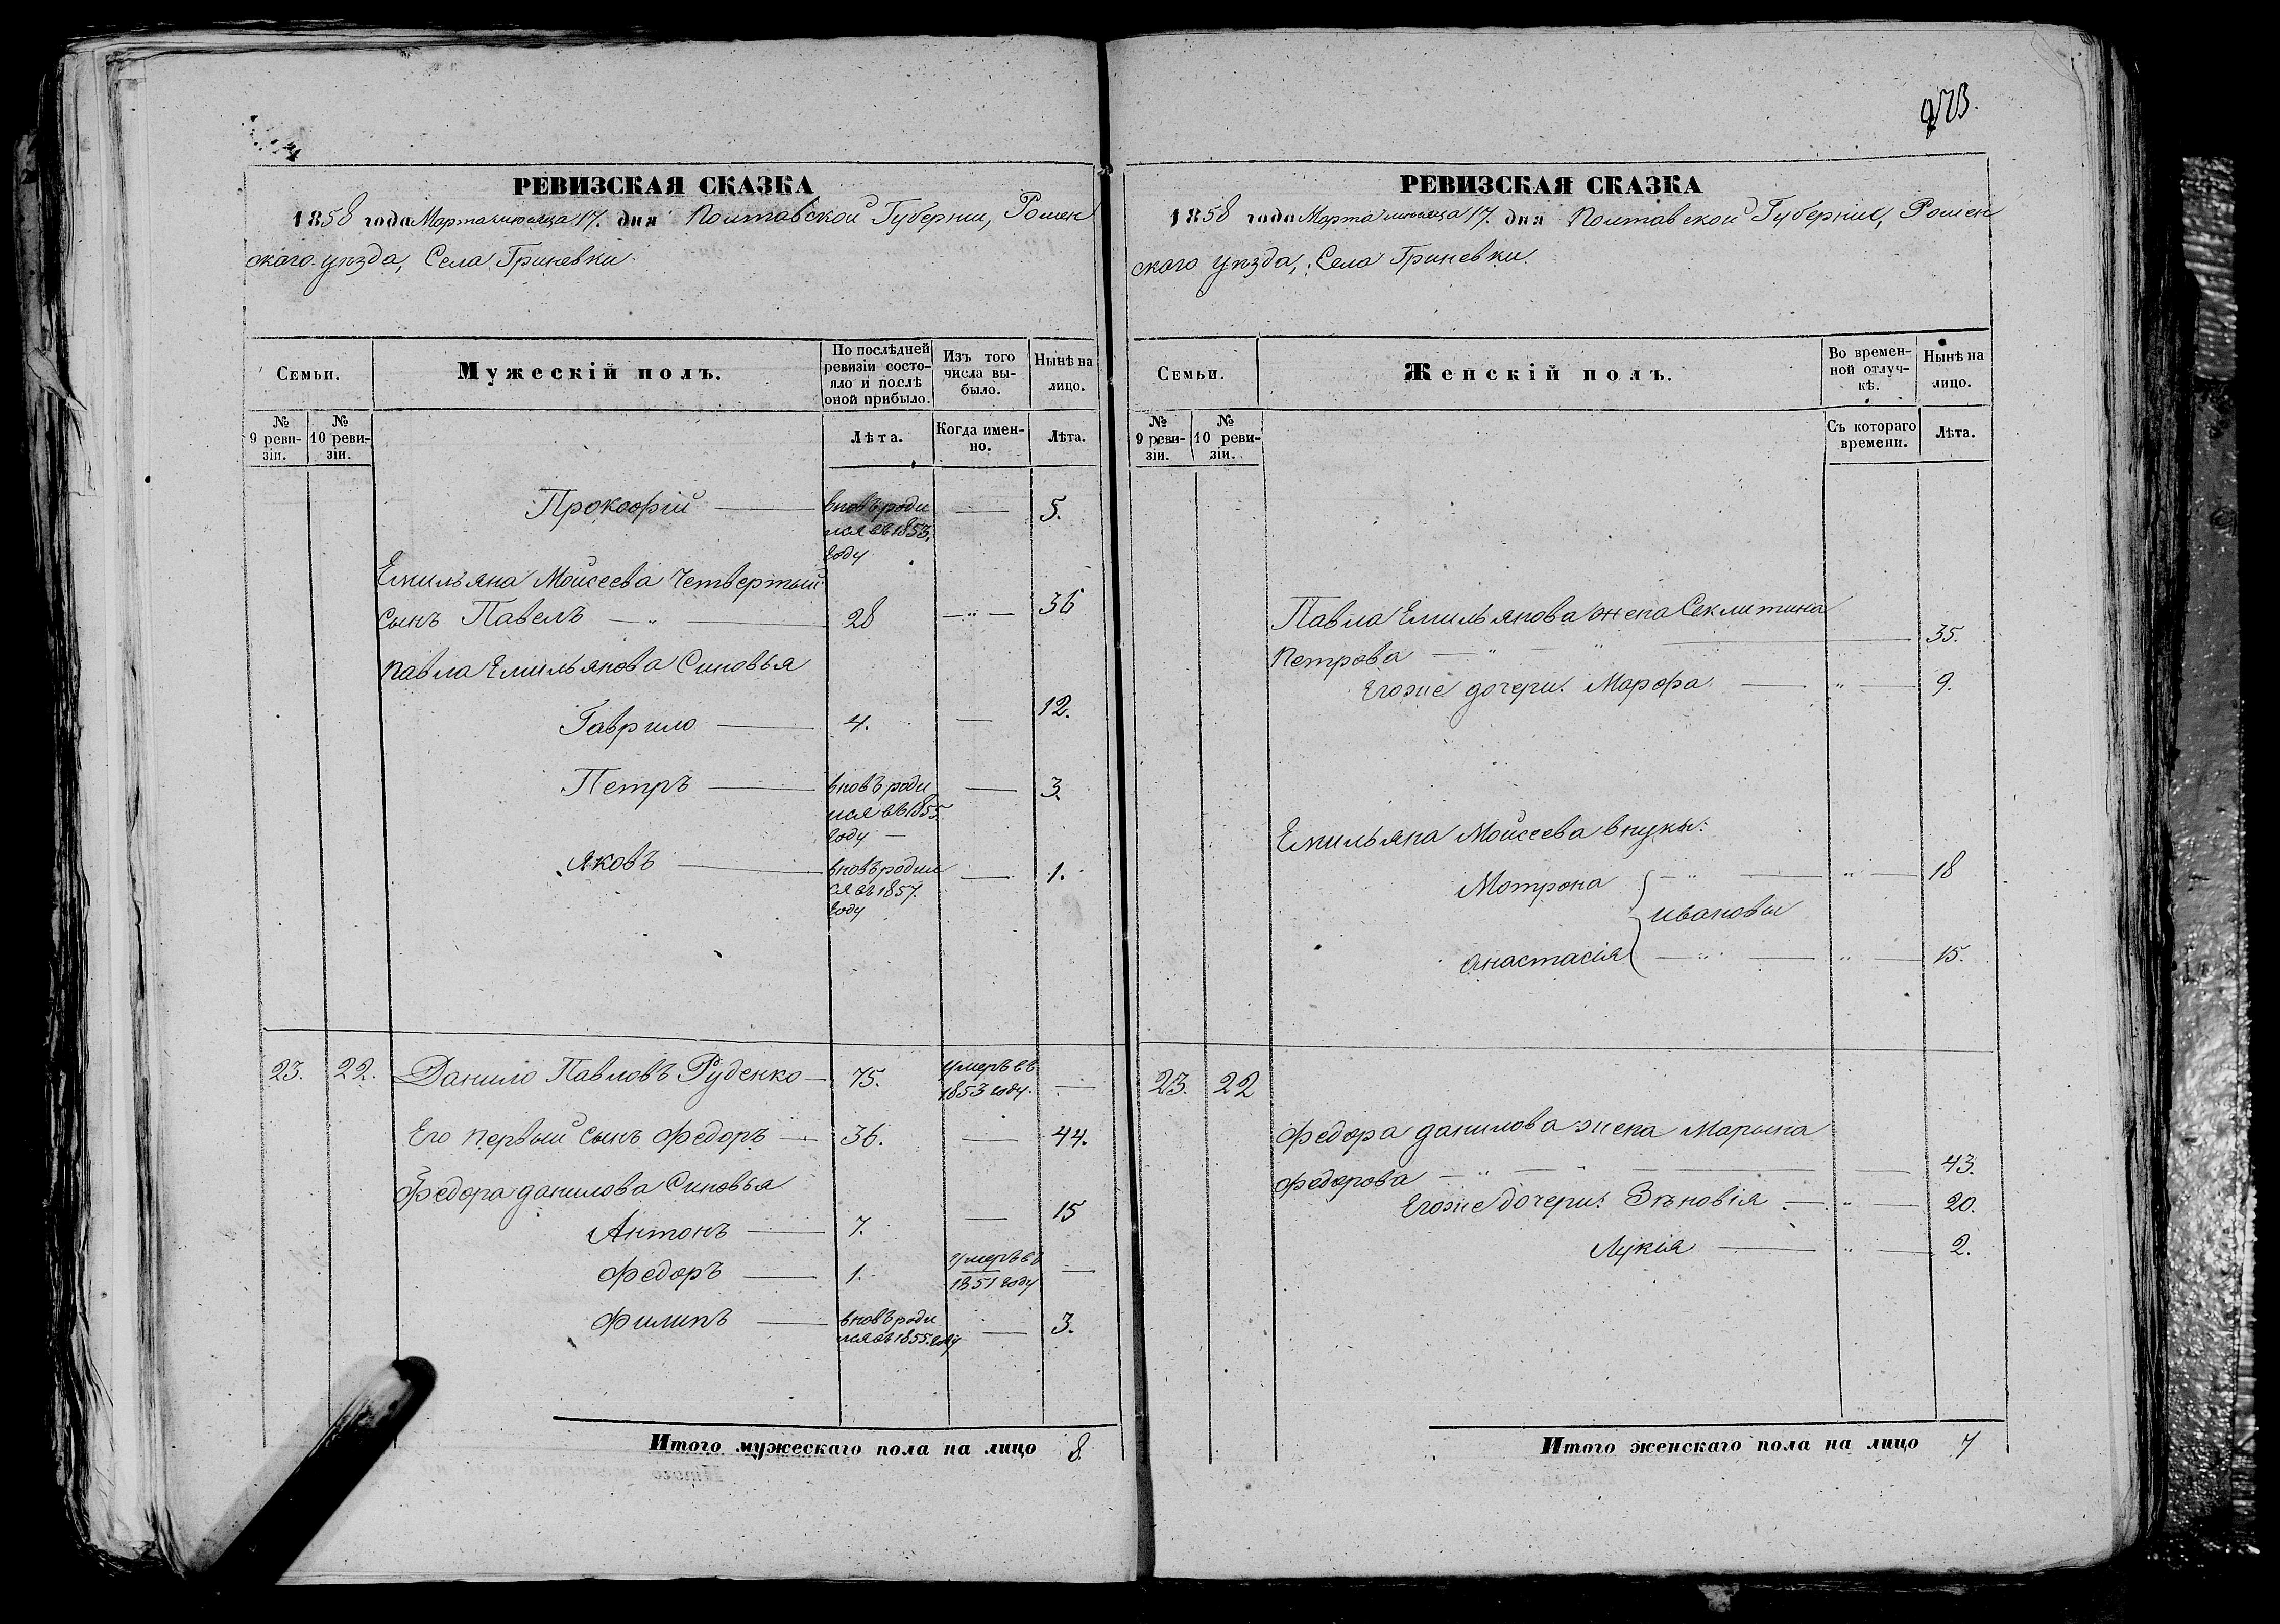 РЕВИЗСКАЯ СКАЗКА
1858 года Марта месяца 17. дня Полтавской Губернии, Ромен
ского уезда, Села Гриневки.
Семьи.
Мужескій полъ.
По послѣдней ревизіи состояло и послѣ оной прибыло.
Изъ того числа выбыло.
Нынѣ на лицо.
№ 9 ревизіи.
№ 10 ревизіи.
Лѣта.
Когда именно.
Лѣта.
Прокофій вновь роди 5.
лся въ 1853.
году
Емильяна Моисеева Четвертый
сынъ Павелъ 28 36
Павла Емильянова Сыновья
Гаврило 4. 12.
Петръ вновь роди 3.
лся въ 1855
году
Яковъ вновь родил 1.
ся въ 1857.
году
23. 22. Данило Павловъ Руденко 75. умеръ въ
1853 году.
Его первый сынъ Федоръ 36. 44.
Федора Данилова Сыновья
Антонъ 7. 15
Федоръ 1. умеръ въ
1851 году
Филипъ вновь роди 3.
лся въ 1855. году
Итого мужескаго пола на лицо 8.
РЕВИЗСКАЯ СКАЗКА
1858 года Марта месяца 17. дня Полтавской Губернии, Ромен
ского уезда, Села Гриневки.
Семьи.
Женскій полъ.
Во временной отлучкѣ.
Нынѣ на лицо.
№ 9 ревизіи.
№ 10 ревизіи.
Съ котораго времени.
Лѣта.
Павла Емильянова жена Секлитина
Петрова 35.
Егоже дочери: Марфа 9.
Емильяна Моисеева внуки:
Мотрона 18
Ивановы
Анастасія 15.
23. 22
Федора Данилова жена Марьина
Федорова 43.
Егоже дочери: Зѣновія 20.
Лукія 2.
Итого женскаго пола на лицо 7